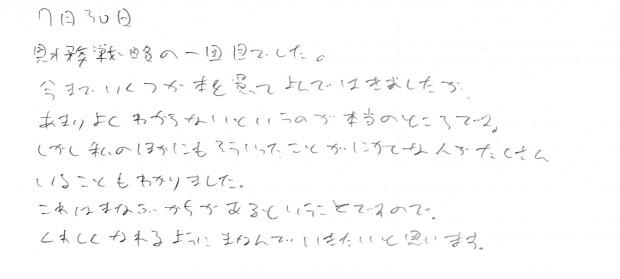 7月30日
財務戦略の一回目でした。
今までいくつか本を買ってよんではきましたが、
あまりよくわからないというのが本当のところです。
しかし私のほかにもそういったことがにがてな人がたくさん
いることもわかりました。
これはまなぶかちがあるということですので、
くわしくなれるようにまなんでいきたいと思います。